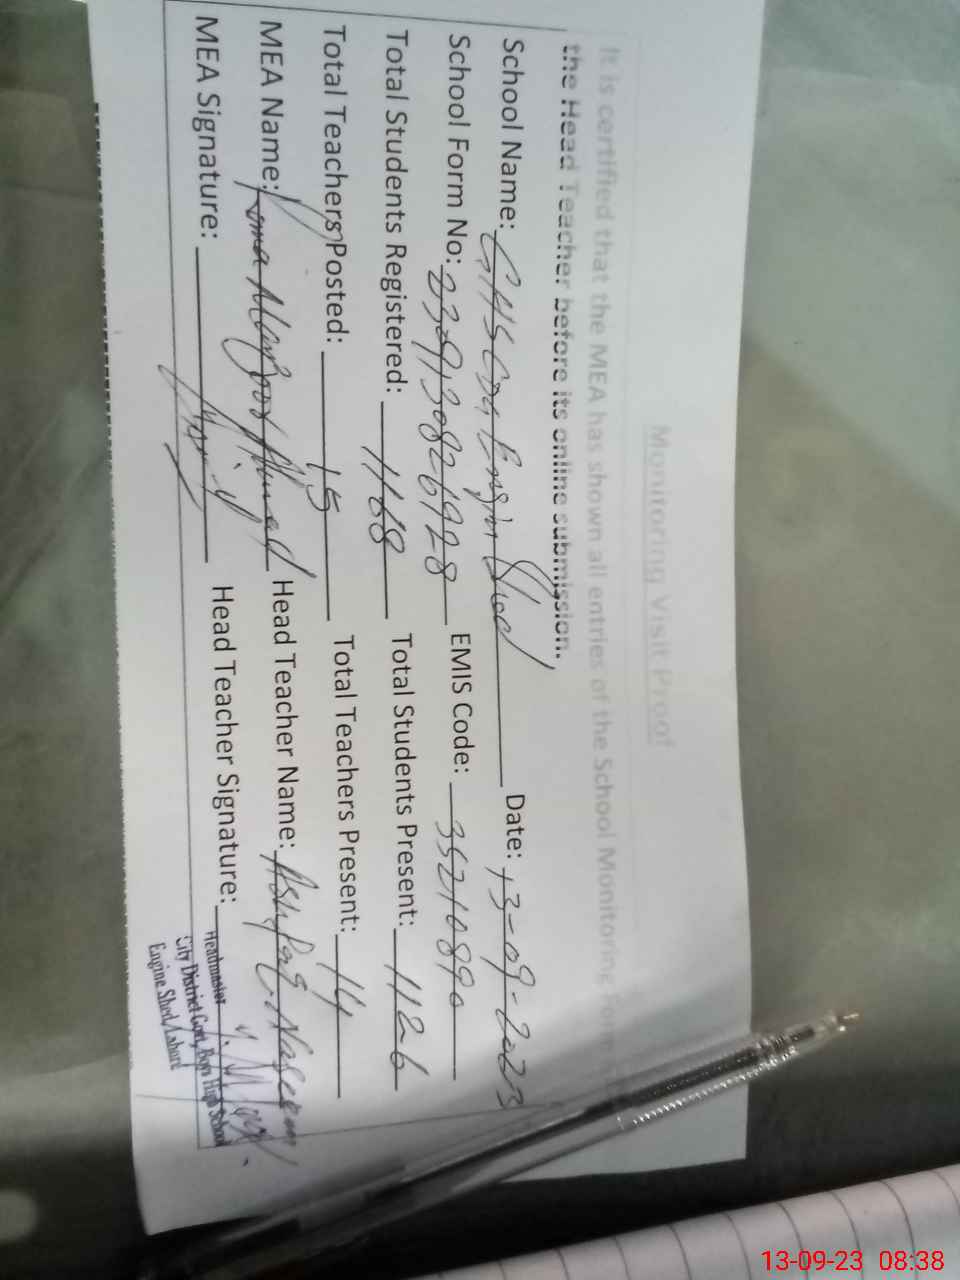 Monitoring Visit Proof
It is certified that the MEA has shown all entries of the School Monitoring Form
the Head Teacher before its online submission.
School Name: GHS CDG Engin Shed Date: 13-09-2023
School Form No: EMIS Code: 35210890
Total Students Registered: 1168 Total Students Present: 1126
Total Teachers Posted: 15 Total Teachers Present: 14
MEA Name: Ahmed Head Teacher Name: Naseem
MEA Signature: Head Teacher Signature:
Headmaster
City District Govt, Boys High School
Engine Shed Lahore
13-09-23 08:38